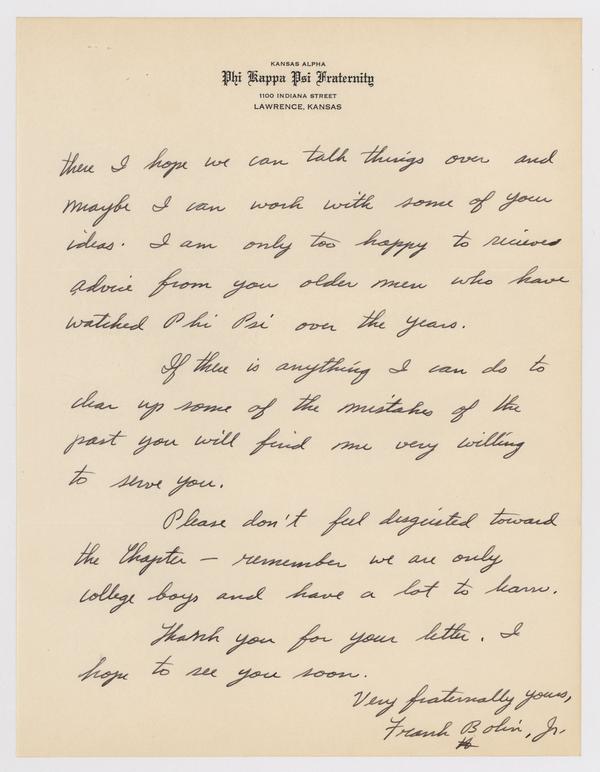 KANSAS ALPHA
Phi Kappa Psi Fraternity
1100 INDIANA STREET
LAWRENCE, KANSAS
there I hope we can talk things over and
maybe I can work with some of your
ideas. I am only too happy to recieved
advice from you older men who have
watched Phi Psi over the years.
If there is anything I can do to
clear up some of the mistakes of the
past you will find me very willing
to serve you.
Please don't feel disgusted toward
the Chapter — remember we are only
college boys and have a lot to learn.
Thank you for your letter. I
hope to see you soon.
Very fraternally yours,
Frank Bolin, Jr.